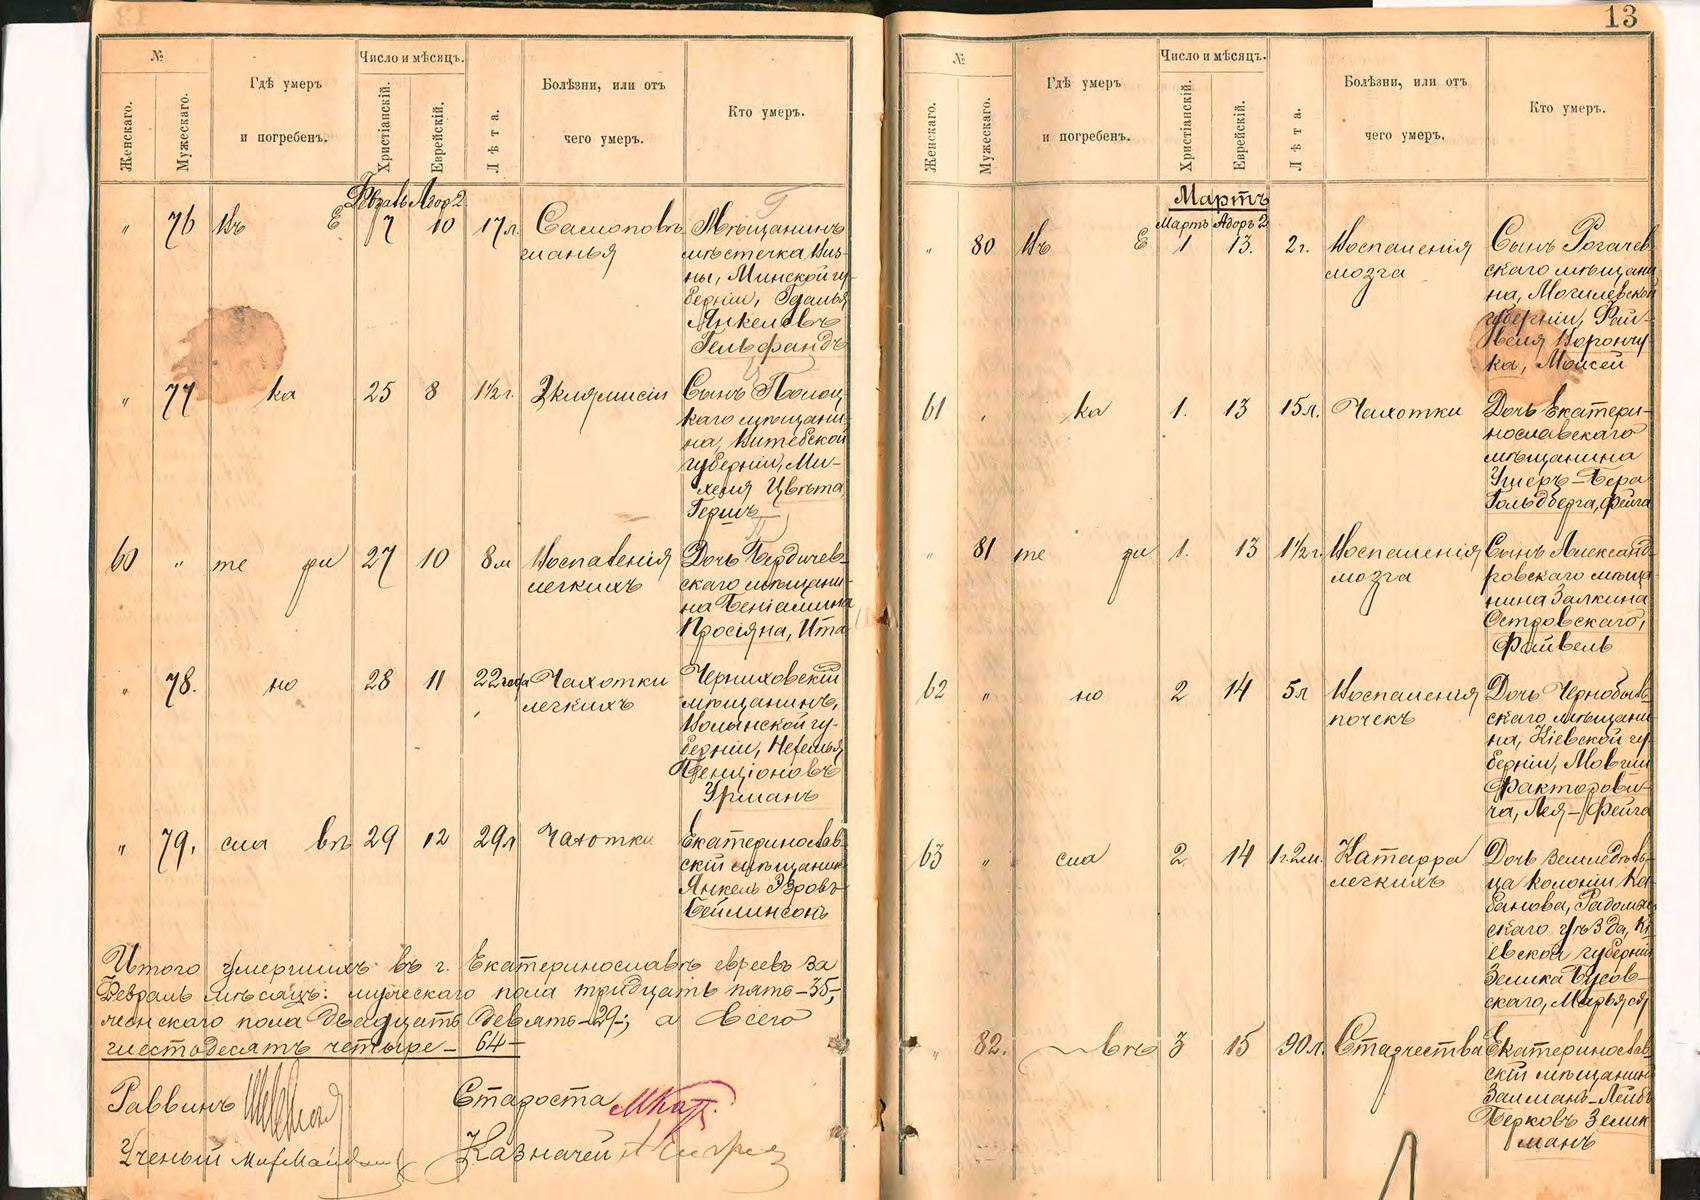 13
№
Число и мѣсяцъ.
Женскаго.
Мужескаго.
Гдѣ умеръ
и погребенъ.
Христіанскій.
Еврейскій.
Лѣта.
Болѣзни, или отъ
чего умеръ.
Кто умеръ.
Адоръ 2
" 76 Въ Е 7 10 17 л.
Мѣщанинъ
мѣстечка Виз-
ны, Минской гу-
берніи, Гдалья
Янкелевъ
Гельфандъ
" 77 ка 25 8 1½ г. Эклямпсіи
Сынъ Полоц
каго мѣщани-
на, Витебской
губерніи, Ми-
хеля Цвѣта,
Гершъ
60 " те ри 27 10 8 м Воспаленія
легкихъ
Дочь Бердичев-
скаго мѣщани-
на Беніамина
Просіяна, Ита
" 78. но 28 11 22 года Чахотки
легкихъ
Черниховскій
мѣщанинъ,
Волынской гу-
берніи,
Бенціоновъ
Урманъ
" 79. сла вѣ 29 12 29 л Чахотки
Екатеринослав-
скій мѣщанинъ
Янкель
Бейлинсонъ
Итого умершихъ въ г. Екатеринославѣ евреевъ за
Февраль мѣсяцъ: мужескаго пола тридцать пять – 35,
женскаго пола двадцать девять – 29; а всего
шестьдесятъ четыре – 64 –
Раввинъ
Староста
Ученый
Казначей
№
Число и мѣсяцъ.
Женскаго.
Мужескаго.
Гдѣ умеръ
и погребенъ.
Христіанскій.
Еврейскій.
Лѣта.
Болѣзни, или отъ
чего умеръ.
Кто умеръ.
Мартъ
Мартъ Адоръ 2
" 80 Въ Е 1 13. 2 г. Воспаленія
мозга
Сынъ Рогачев
скаго мѣщани
на, Могилевской
губерніи, Фай-
веля Ворончу-
ка, Мойсей
61 " ка 1. 13 15 л. Чахотки
Дочь Екатери-
нославскаго
мѣщанина
Ушеръ-Бера
Гольдберга, Фейга
" 81 те ри 1. 13 1½ г. Воспаленія
мозга
Сынъ Александ-
ровскаго мѣща-
нина Залкина
Островскаго,
Файвель
62 " но 2 14 5 л Воспаленія
почекъ
Дочь Чернобыль-
скаго мѣщани-
на, Кіевской гу-
берніи, Мовши
Факторови-
ча, Лея-Фейга
63 " сла 2 14 1 г. 2 м. Катарра
легкихъ
Дочь земледѣль-
ца колоніи Ка-
банова, Радомысль
скаго уѣзда, Кі
евской губерніи
Зелика Бусов-
скаго, Марьяся
" 82. вѣ 3 15 90 л. Старчества
Екатеринослав-
скій мѣщанинъ
Залманъ-Лейбъ
Берковъ Зелик
манъ